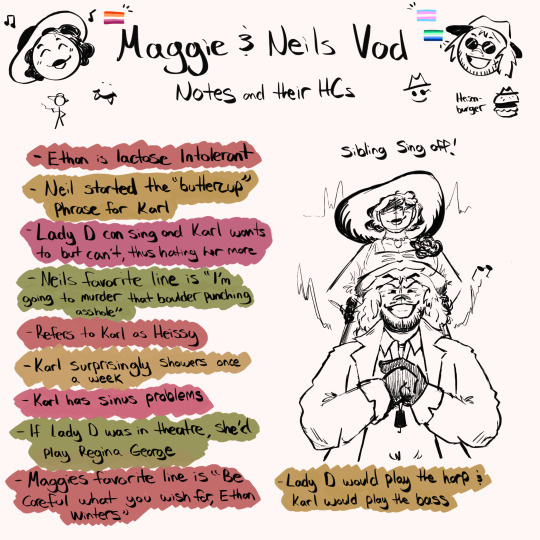 Maggie & Neils Vod
Notes and their HCs
Heisen-
burger
- Ethan is lactose Intolerant
- Neil started the "buttercup"
Phrase for Karl
- Lady D can sing and Karl wants
to but can't, thus hating her more
- Neils favorite line is "I'm
going to murder that boulder punching
asshole"
- Refers to Karl as Heissy
- Karl surprisingly showers once
a week
- Karl has sinus problems
- If Lady D was in theatre, she'd
play Regina George
- Maggies favorite line is "Be
Careful what you wish for, Ethan
Winters"
Sibling Sing off!
- Lady D would play the harp &
Karl would play the bass